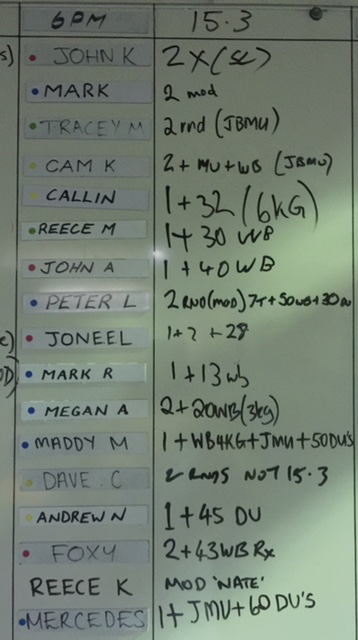 6PM 15.3
s) JOHN K 2 X (SC)
MARK 2 mod
TRACEY M 2 rnd (JBMU)
CAM K 2 + MU + WB (JBMU)
CALLIN 1 + 32 (6KG)
REECE M 1 + 30 WB
JOHN A 1 + 40 WB
PETER L 2 RND (mod) 7T + 50WB + 30
c) JONEEL 1 + ? + 28
OD) MARK R 1 + 13 wb
MEGAN A 2 + 20WB (3kg)
MADDY M 1 + WB4KG + JMU + 50DU'S
DAVE . C 2 RNDS NOT 15.3
ANDREW N 1 + 45 DU
FOXY 2 + 43 WB Rx
REECE K MOD 'NATE'
MERCEDES 1 + JMU + 60 DU'S